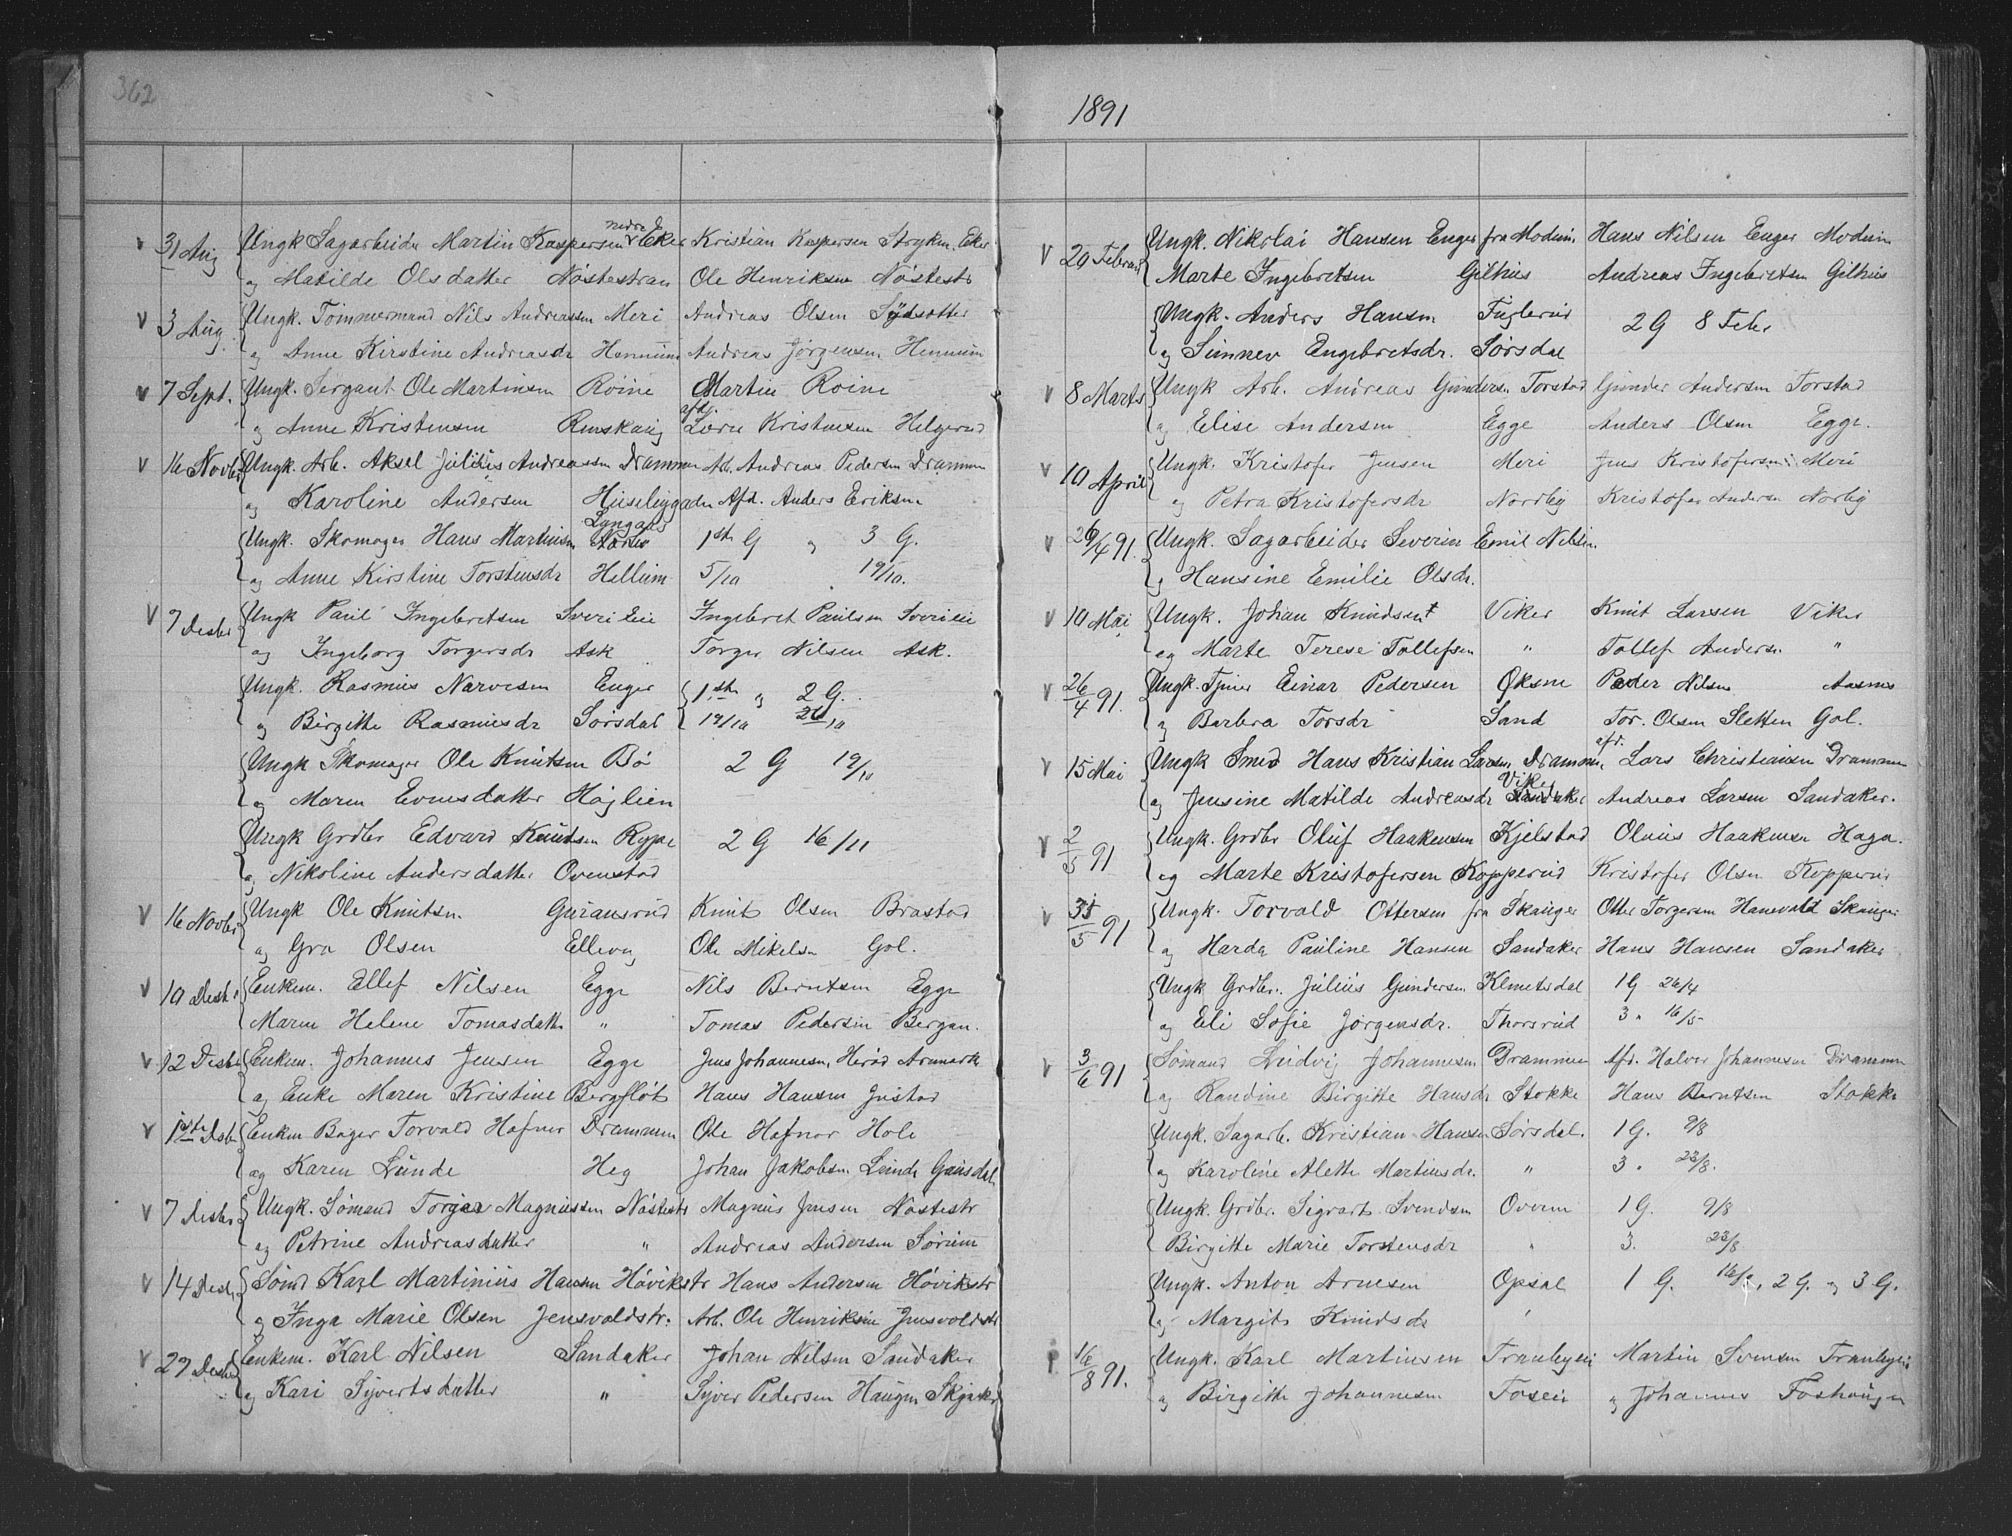 362
31 Aug Ungk Sagarbeider Martin Kaspersen nedre Eker Kristian Kaspersen Stryken, Eker
og Matilde Olsdatter Nöstestran Ole Henriksen Nöstestr
3 Aug Ungk. Tömmermand Nils Andreassen Meri Andreas Olsen
og Anne Kirstine Andreasdr Hennum Andreas Jörgensen Hennum
7 Sept. Ungk. Sergant Ole Martinsen Röine Martin Roine
og Anne Kristensen Renskaug afd. Lovre Kristensen Helgerud
16 Novbr Ungk. Arb. Aksel Julius Andreassen Drammen Arb. Andreas Pedersen Drammen
og Karoline Andersen Huseliggaden Afd. Anders Eriksen
Ungk. Skomager Hans Martinsen Lyngaas 1ste G og 3 G.
og Anne Kirstine Torstensdr Hellum 5/10 19/10.
7 Desbr Ungk Paul Ingebretsen Sverileie Ingebret Paulsen Sverileie
og Ingeborg Torgersdr Ask Torger Nilsen Ask.
Ungk. Rasmus Narvesen Enger 1.ste og 2 G.
og Birgitte Rasmusdr Sörsdal 19/10 26/10
Ungk Skomager Ole Knutsen Bö 2 G 19/10
og Maren Evensdatter Höjlien
Ungk Grdbr Edvard Knudsen Rype 2 G 16/11
og Nikoline Andersdatter Ovenstad
16 Novbr Ungk Ole Knutsen Guransrud Knut Olsen Brastad
og Gro Olsen Ellevog Ole Mikelsen Gol.
10 Desbr Enkem. Ellef Nilsen Egge Nils Berntsen Egge
Maren Helene Tomasdatter " Tomas Pedersen Bergan.
12 Desbr Enkem. Johannes Jensen Egge Jens Johannesen, Heröd Aremark
og Enke Maren Kristine Bergflöt Hans Hansen Justad
1ste Desbr Enkem Bager Torvald Hafnor Drammen Ole Hafnor Hole
og Karen Lunde Heg Johan Jakobsen Lunde Gausdal
7 Desbr Ungk. Sömand Torger Magnussen Nöstestr Magnus Jensen Nöstestr
og Petrine Andreasdatter " Andreas Andersen Sörum
14 Desbr Sömd Karl Martinius Hansen Hövikstr Hans Andersen Hövikstr
og Inga Marie Olsen Jensvoldstr. Arb. Ole Henriksen Jensvoldstr
27 Desbr Enkem. Karl Nilsen Sandaker Johan Nilsen Sandaker
og Kari Syvertsdatter " Syver Pedersen Haugen Skjak
1891
20 Februar Ungk. Nikolai Hansen Enger fra Modum, Hans Nilsen Enger Modum
Marte Ingebretsen Gilhus Andreas Ingebretsen Gilhus
Ungk. Anders Hansen Fuglerud 2 G 8 Febr
og Sunnev Engebretsdr. Sörsdal
8 Marts Ungk Arb. Andreas Gundersen Torstad Gunder Andersen Torstad
og Elise Andersen Egge Anders Olsen Egge.
10 April Ungk. Kristofer Jensen Meri Jens Kristofersen Meri
og Petra Kristofersdr Nordby Kristofer Andersen Norby
26/4 91. Ungk. Sagarbeider Severin Emil Nilsen
og Hansine Emilie Olsdr.
10 Mai Ungk. Johan Knudsen Viker Knut Larsen Viker
og Marte Terese Tollefsen " Tollef Andersen "
26/4 91. Ungk. Tjener Einar Pedersen Oksne Peder Nilsen Aasnes
og Barbra Torsdr Sand Tor. Olsen Sletten Gol.
15 Mai Ungk Smed Hans Kristian Larsen, Drammen, afd. Lars Christiansen Drammen
og Jensine Matilde Andreasdr Viker Andreas Larsen Sandaker.
2/5 91 Ungk. Grdbr Oluf Haakensen Kjelstad Olaus Haakensen Haga.
og Marte Kristofersen Kopperud Kristofer Olsen Kopperud
/5 91 Ungk. Torvald Ottersen fra Skauger Otter Torgersen Hanevold Skauger
og Harda Pauline Hansen Sandaker Hans Hansen Sandaker
Ungk Grdbr. Julius Gundersen Klemetsdal 1 G 26/4
og Eli Sofie Jörgensdr. Thorsrud 3 " 16/5
3/6 91 Sömand Ludvig Johannesen Drammen Afd. Halvor Johannesen Drammen
og Randine Birgitte Hansdr Stokke Hans Berntsen Stokke
Ungk. Sagarb. Kristian Hansen Sörsdal. 1 G. 9/8
og Karoline Alette Martinsdr. " 3 " 23/8.
Ungk. Grdbr. Sigvart Svendsen Overn 1 G. 9/8
Birgitte Marie Torstensdr " 3. 23/8
Ungk. Anton Arnesen Opsal 1 G. 16/8, 2 G. og 3 G.
og Margit Knudsdr "
16/8 91. Ungk. Karl Martinsen Tranbyeie Martin Svensen Tranbyeie
og Birgitte Johannesen Foseie og Johannes Foshaugen